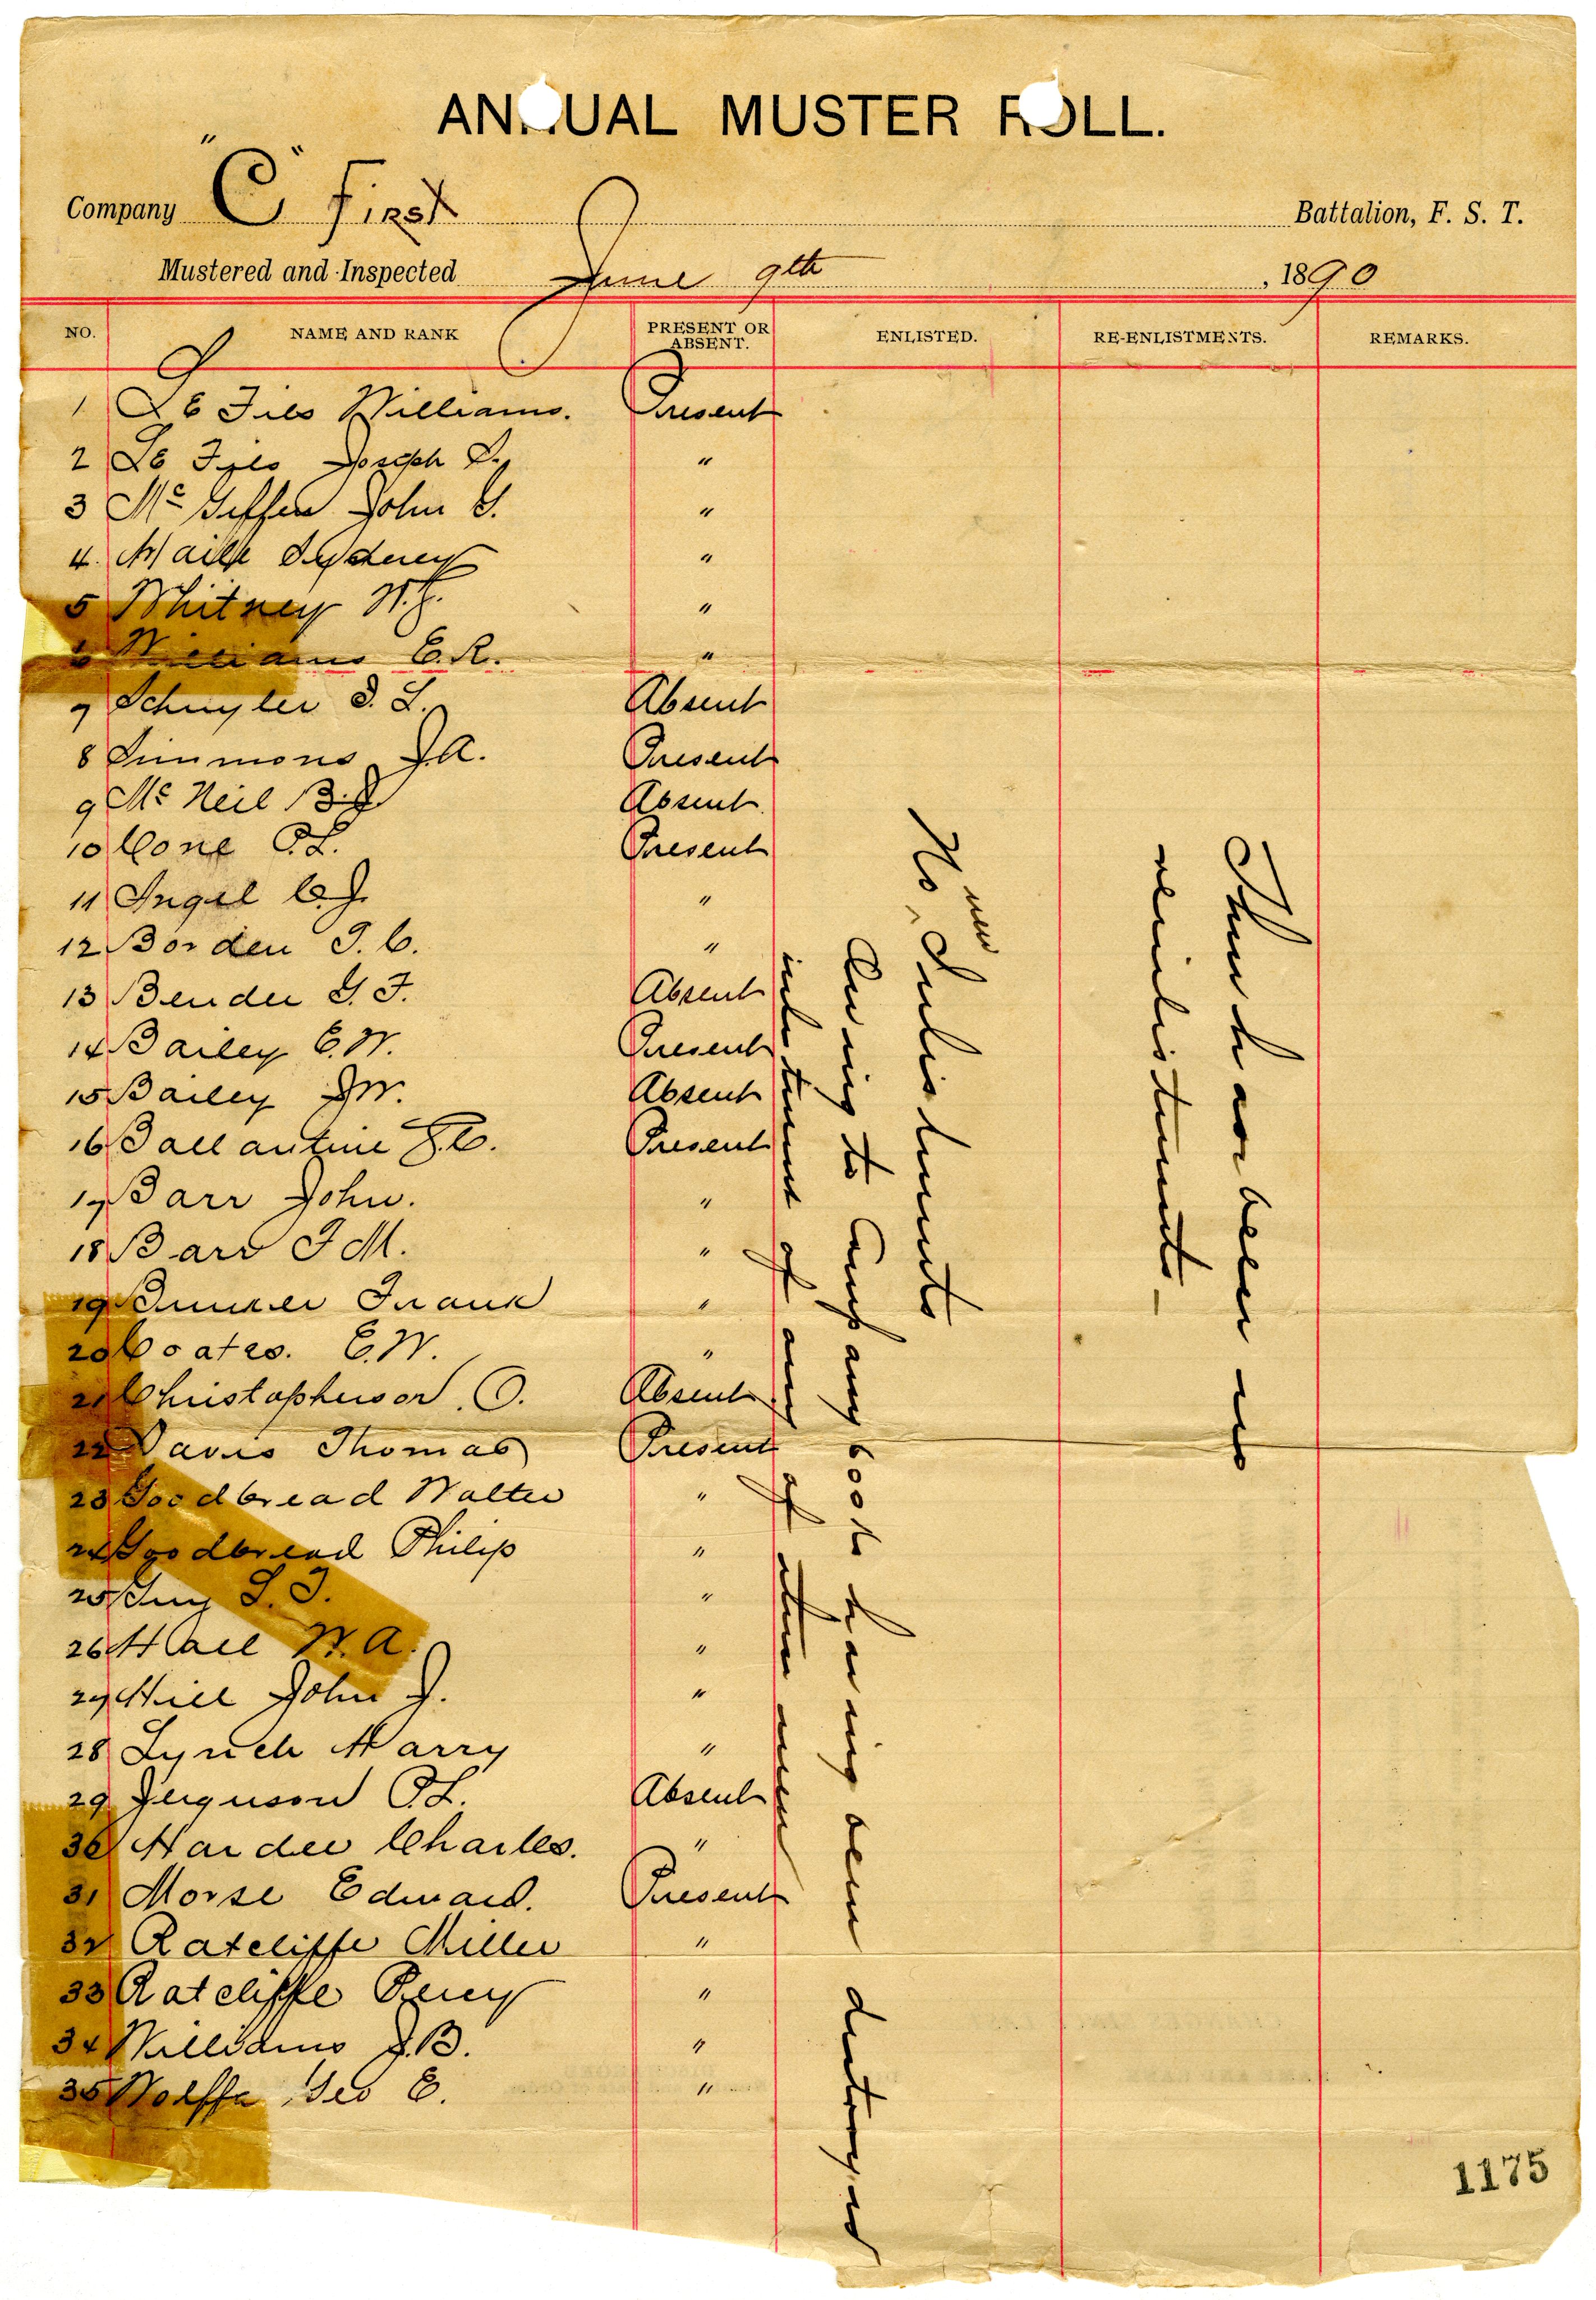 ANNUAL MUSTER ROLL.
Company "C" First Battalion, F. S. T.
Mustered and Inspected June 9th, 1890
NO. NAME AND RANK PRESENT OR ABSENT. ENLISTED. RE-ENLISTMENTS. REMARKS.
1 Le Fils Williams. Present
2 Le Fils Joseph D. "
3 Mc Giffen John G. "
4. Sydney "
5 Whitney W. J. "
6 Williams E. R. "
7 Schuyler S. L. Absent
8 Simmons J. A. Present
9 Mc Neil B. J. Absent
10 Cone O. L. Present
11 Ingel C. J. "
12 Borden T. C. "
13 Bender G. F. Absent
14 Bailey E. W. Present
15 Bailey J W. Absent
16 Ballantine J. C. Present
17 Barr John. "
18 Barr F M. "
19 Frank "
20 Coates. E. W. "
21 Christopherson. O. Absent
22 Davis Thomas Present
23 Goodbread Walter "
24 Goodbread Philip "
25 Guy S. T. "
26 Hall W. A. "
27 Hill John J. "
28 Lynch Harry "
29 Ferguson O. L. Absent
30 Hardee Charles. "
31 Morse Edward. Present
32 Ratcliffe Miller "
33 Ratcliffe Percy "
34 Williams J. B. "
35 Wolffe Geo E. "
No new Enlistments
Owing to Company book having been destroyed
inlistment of any of then men
Thur has been no
reinlistments -
1175